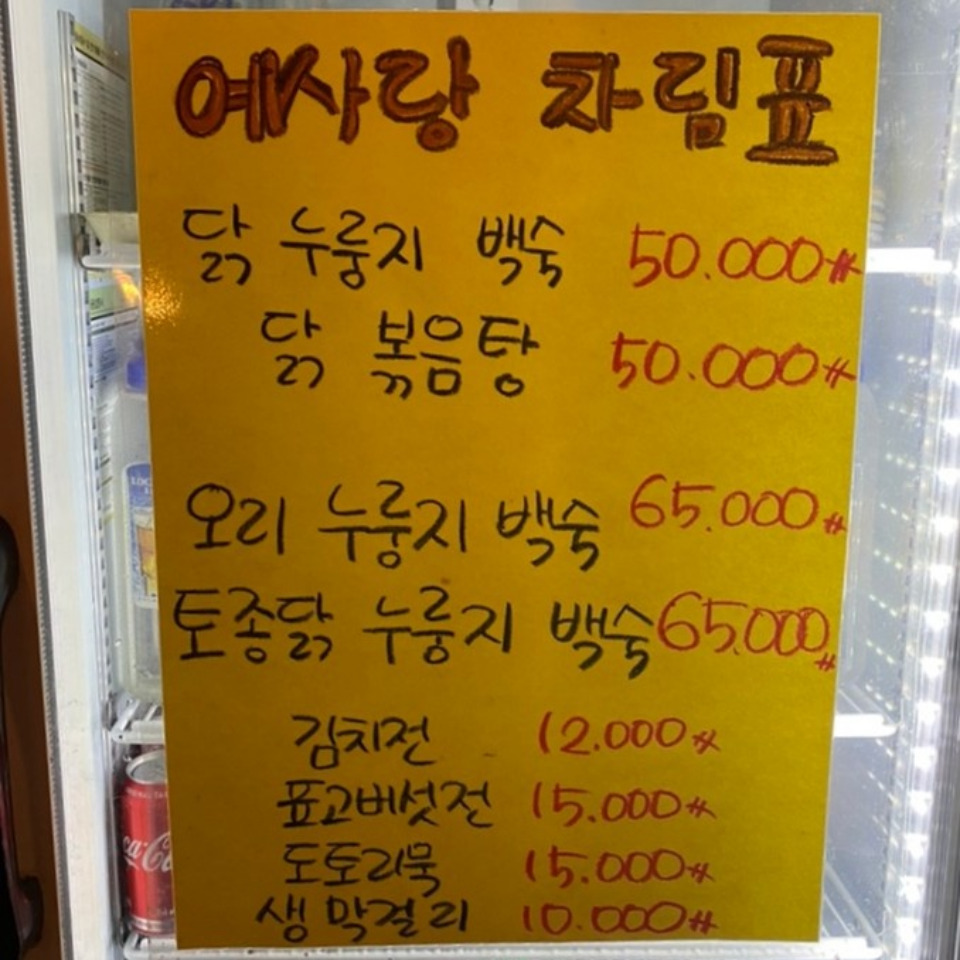 예사랑 차림표
닭 누룽지 백숙 50.000#
닭 볶음탕 50.000#
오리 누룽지 백숙 65.000#
토종닭 누룽지 백숙 65.000#
김치전 12.000#
표고버섯전 15.000#
도토리묵 15.000#
생 막걸리 10.000#